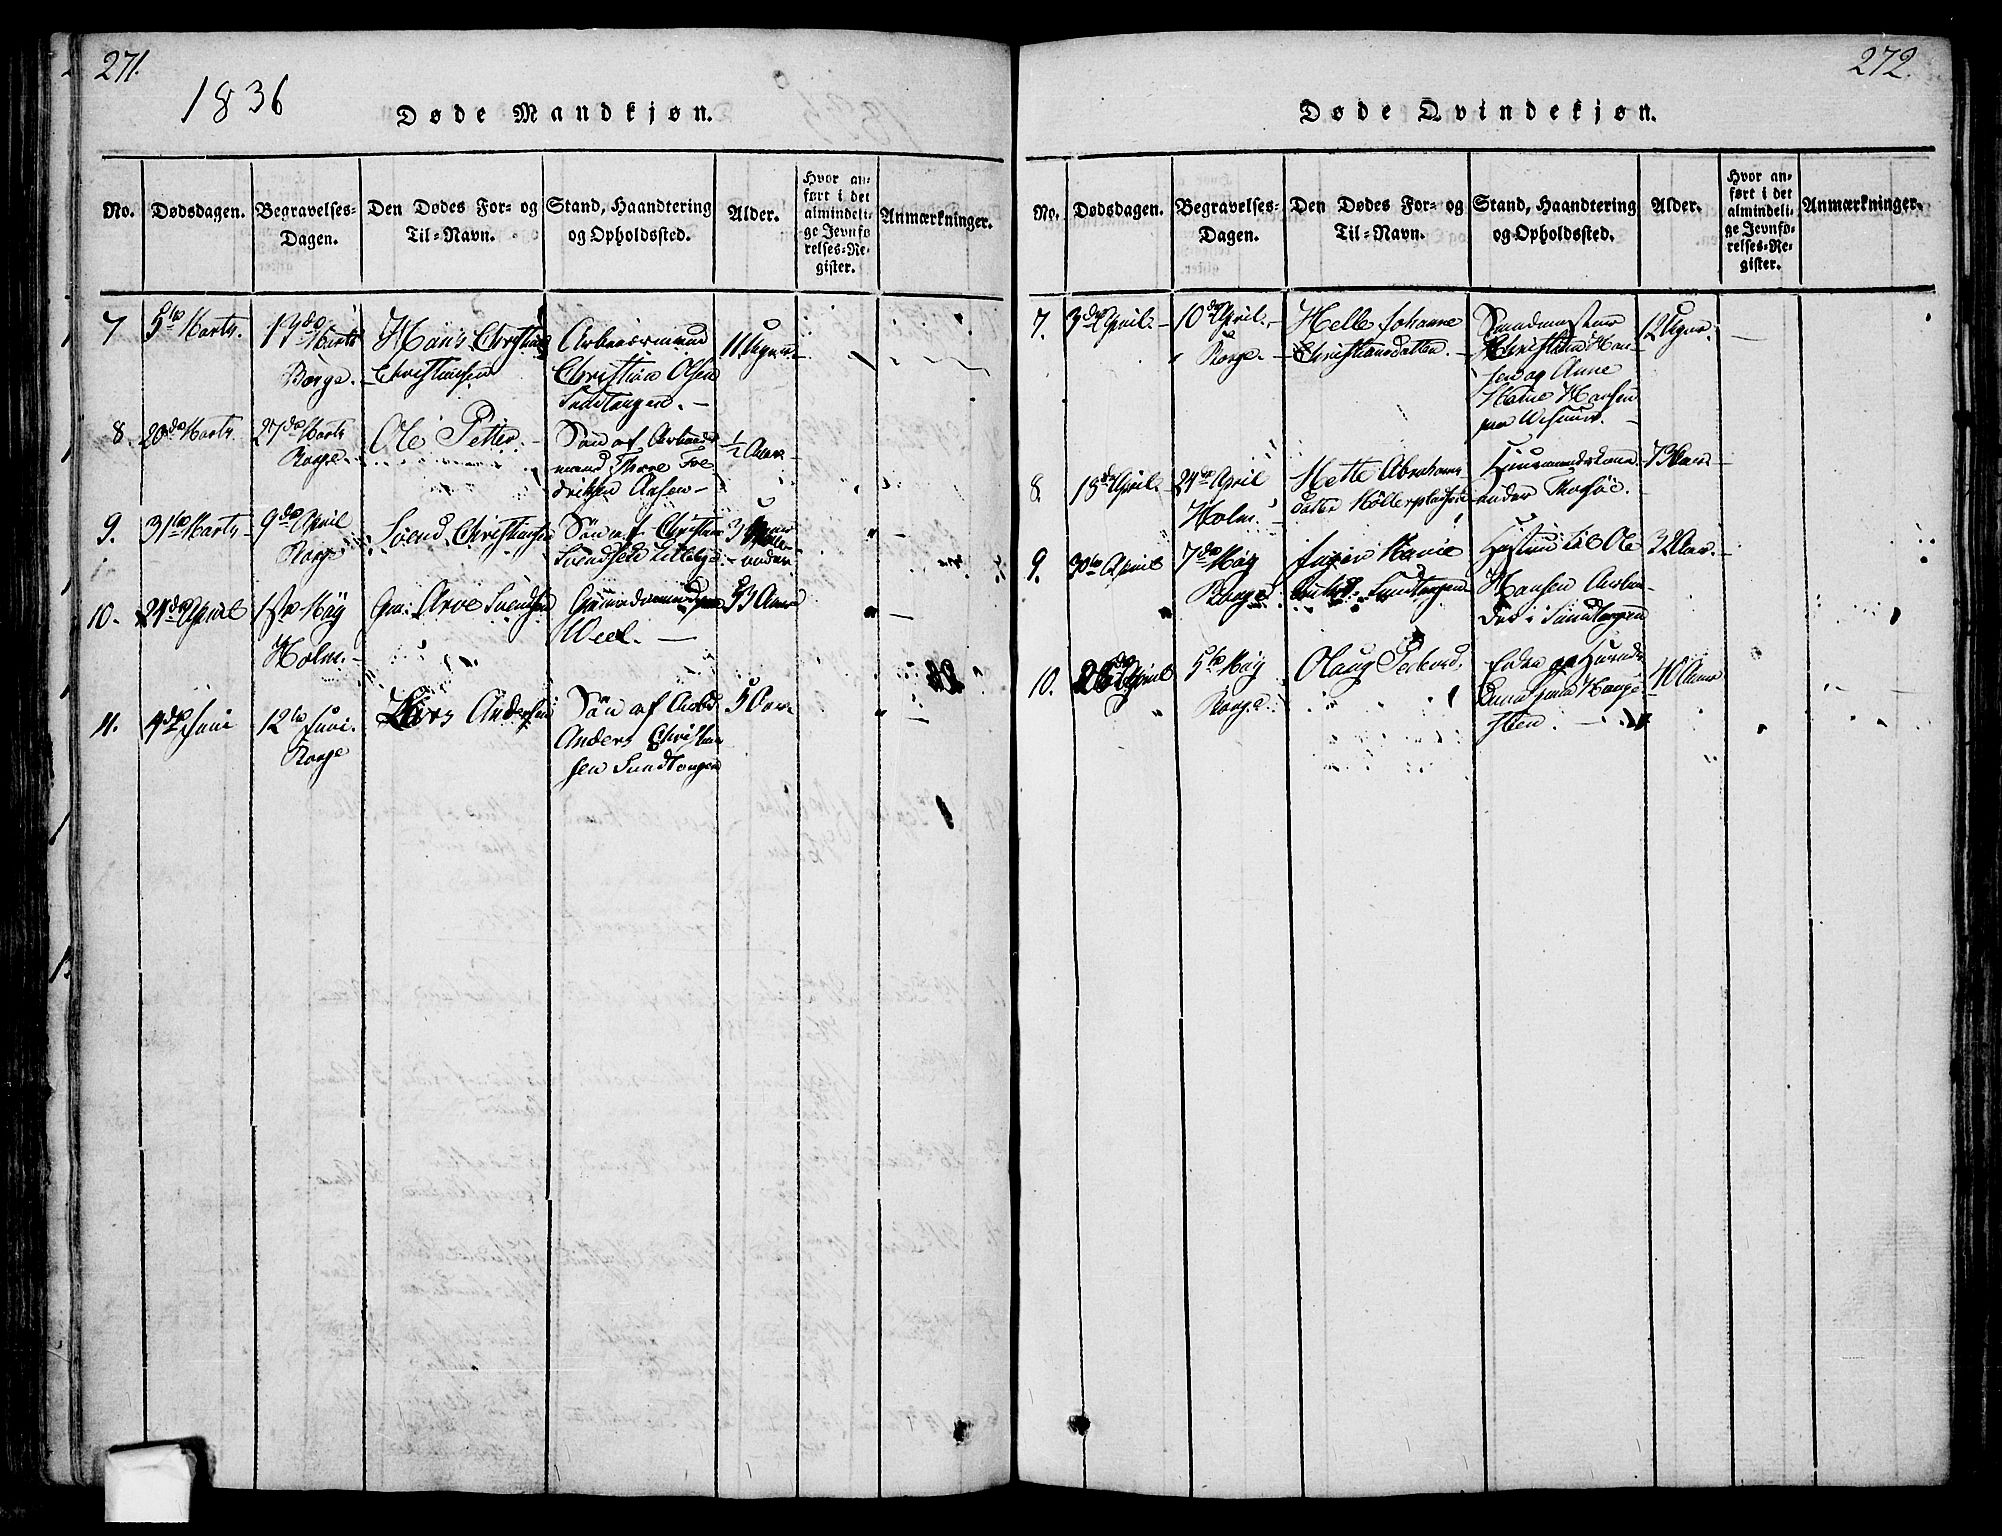 271.
1836
Døde Mandkjøn.
No.
Dødsdagen.
Begravelses-
Dagen.
Den Dødes For- og
Til-Navn.
Stand, Haandtering
og Opholdssted.
Alder.
Hvor an-
ført i det
almindeli-
ge Jevnfø-
relses-Re-
gister.
Anmærkninger.
7
5te Marts.
13de Marts
Borge.
Hans Christian
Christiansen
Arbeidsmand
Christian Olsen
Sandtangen.
11 Uger
8.
20de Marts.
27de Marts
Borge.
Ole Petter.
Søn af Arbeids
mand
1/2 Aar
9.
31te Marts
9de April
Borge
Svend Christiansen
Søn af Christian
Svendsen
3
10.
24de April
1ste May
Holm.
Arve Svendsen
Gaardmand
53 Aar
11.
4de Juni
12te Juni.
Borge
Lars Andersen
Søn af Arbd.
Anders Christian
sen Sandtangen
5 Aar
272.
Døde Qvindekjøn.
No.
Dødsdagen.
Begravelses-
Dagen.
Den Dødes For- og
Til-Navn.
Stand, Haandtering
og Opholdssted.
Alder.
Hvor an-
ført i det
almindeli-
ge Jevnfø-
relses-Re-
gister.
Anmærkninger.
7.
3de April.
10de April.
Borge.
Helle Johanne
Christiansdatter.
Christian Han-
sen og Anne
Marie Hansen
12 Uger.
8.
18de April.
24de April
Holm.
Mette Abrahams
datter Møllerpladsen
Huusmandskone
under
73 Aar
9.
30te April
7de May
Borge
Inger Marie
Sandtangen
Hustru til Ole
Hansen Arbei
der i Sandtangen
32 Aar.
10.
26de April
5te May
Borge.
Olaug Pedersd.
Enke og Huusmds
40 Aar